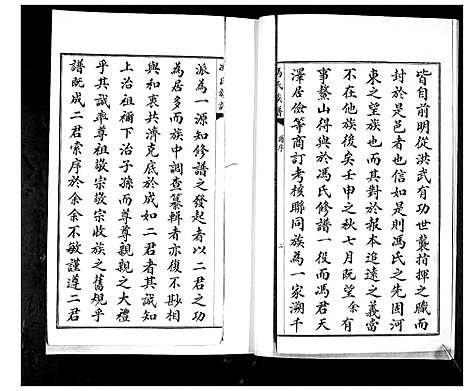 皆自前明從洪武有功世襲指揮之職而
封於是邑者也信如是則馮氏之先固河
東之望族也而其對於報本追遠之義當
不在他族後矣壬申之秋七月既望余有
事鰲山得與於馮氏修譜一役而馮君天
澤居儉等商訂考核聯同族為一家溯千
馮氏族譜
譜序
二
派為一源知修譜之發起者以二君之功
為居多而族中調查纂輯者亦復不尠相
與和衷共濟克底於成如二君者其誠知
上治祖禰下治子孫而尊尊親親之大禮
乎其誠率尊祖敬宗敬宗收族之舊規乎
譜既成二君索序於余余不敏謹遵二君